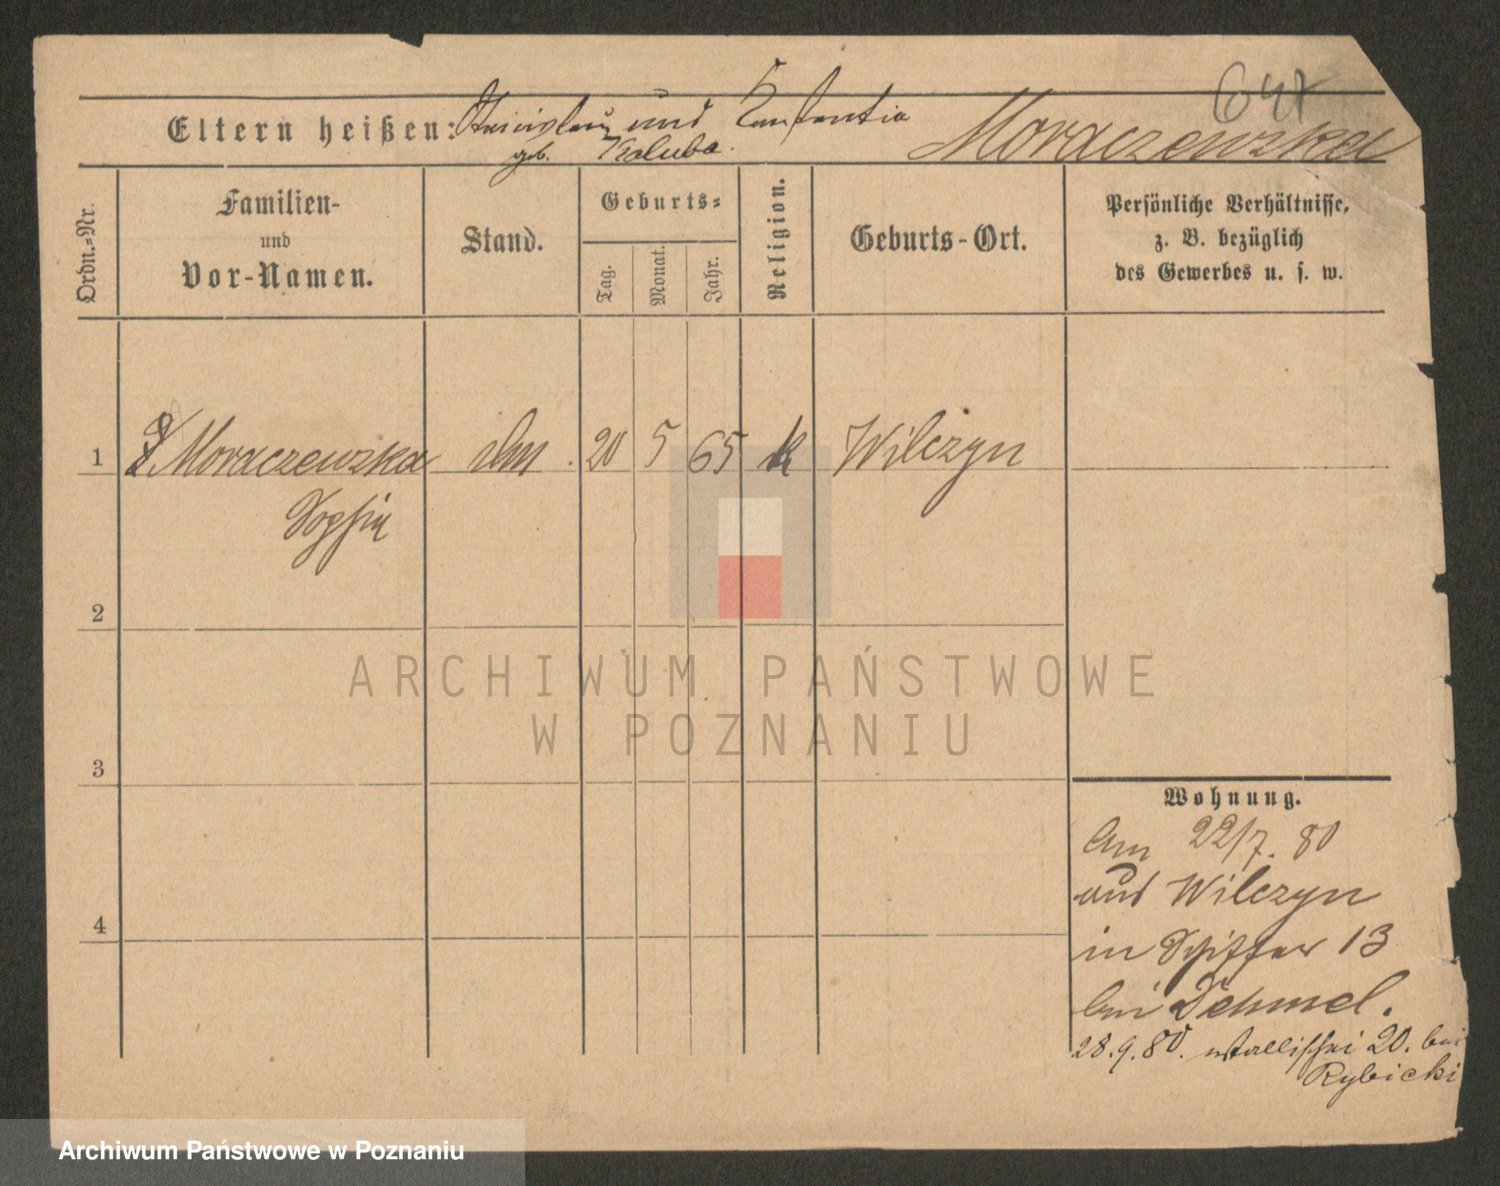 647
Eltern heißen: Stanislaus und Konstantia
geb. Kaluba. Moraczewska
Ordn.=Nr.
Familien-
und
Vor-Namen.
Stand.
Geburts=
Tag.
Monat.
Jahr.
Religion.
Geburts-Ort.
Persönliche Verhältnisse,
z. B. bezüglich
des Gewerbes u. s. w.
1 Moraczewska 20 5 65 k Wilczyn
Sophia
2
3
4
Wohnung.
Am 22/7. 80
aus Wilczyn
in Schiffer 13
bei Dehmel.
28.9.80. 20. bei
Rybicki
ARCHIWUM PAŃSTWOWE
W POZNANIU
Archiwum Państwowe w Poznaniu